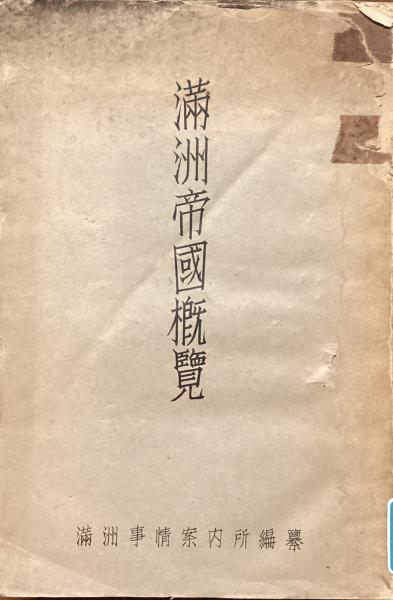 滿洲帝國概覽
滿洲事情案內所編纂